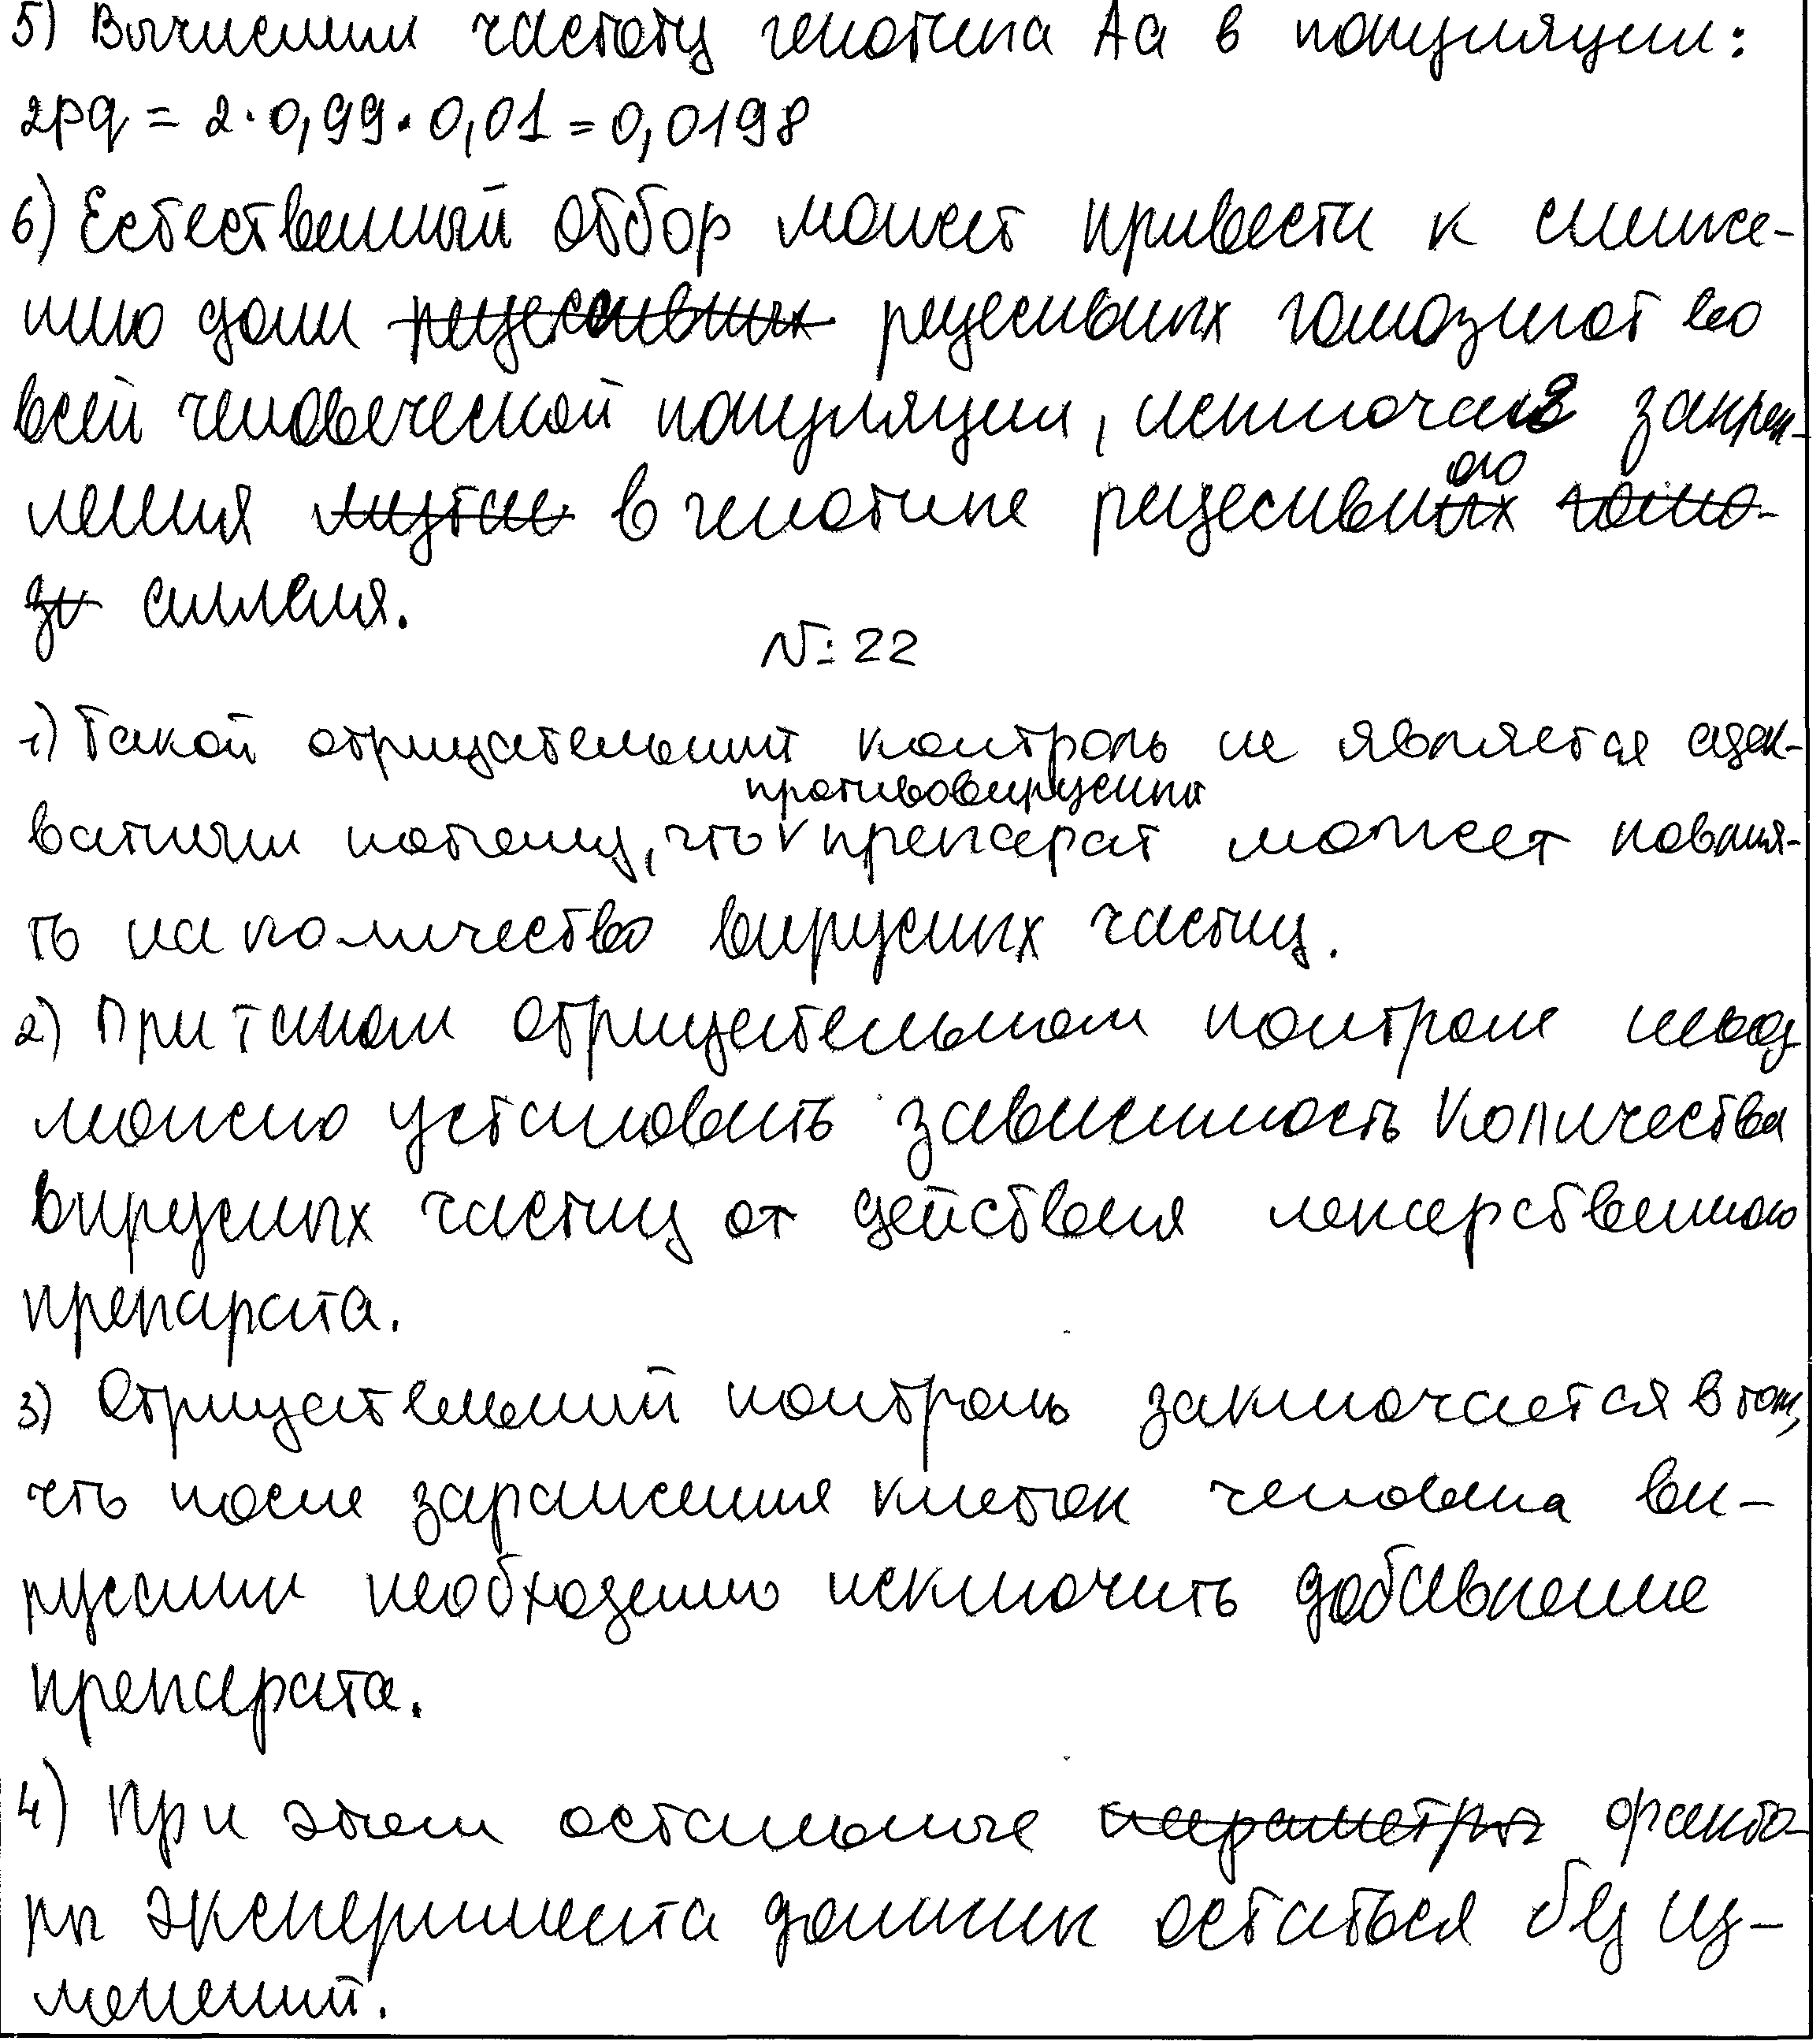 5) Вычислим частоту генотипа Аа в популяции:
2pq = 2·0,99·0,01 = 0,0198
6) Естественный отбор может привести к сниже-
нию доли рецессивных рецесивных гомозигот во
всей человеческой популяции, исключая закреп-
ления мутац в генотипе рецесивного гомо-
зи аллеля.
№ 22
1) Такой отрицательный контроль не является адек-
противовирусный
ватным потому, что V препарат может повлия-
ть на количество вирусных частиц.
2) При таком отрицательном контроле невоз
можно установить зависимость количества
вирусных частиц от действия лекарственного
препарата.
3) Отрицательный контроль заключается в том,
что после заражения клеток человека ви-
русами необходимо исключить добавление
препарата.
4) При этом остальные параметры факто-
ры эксперимента должны остаться без из-
менений.